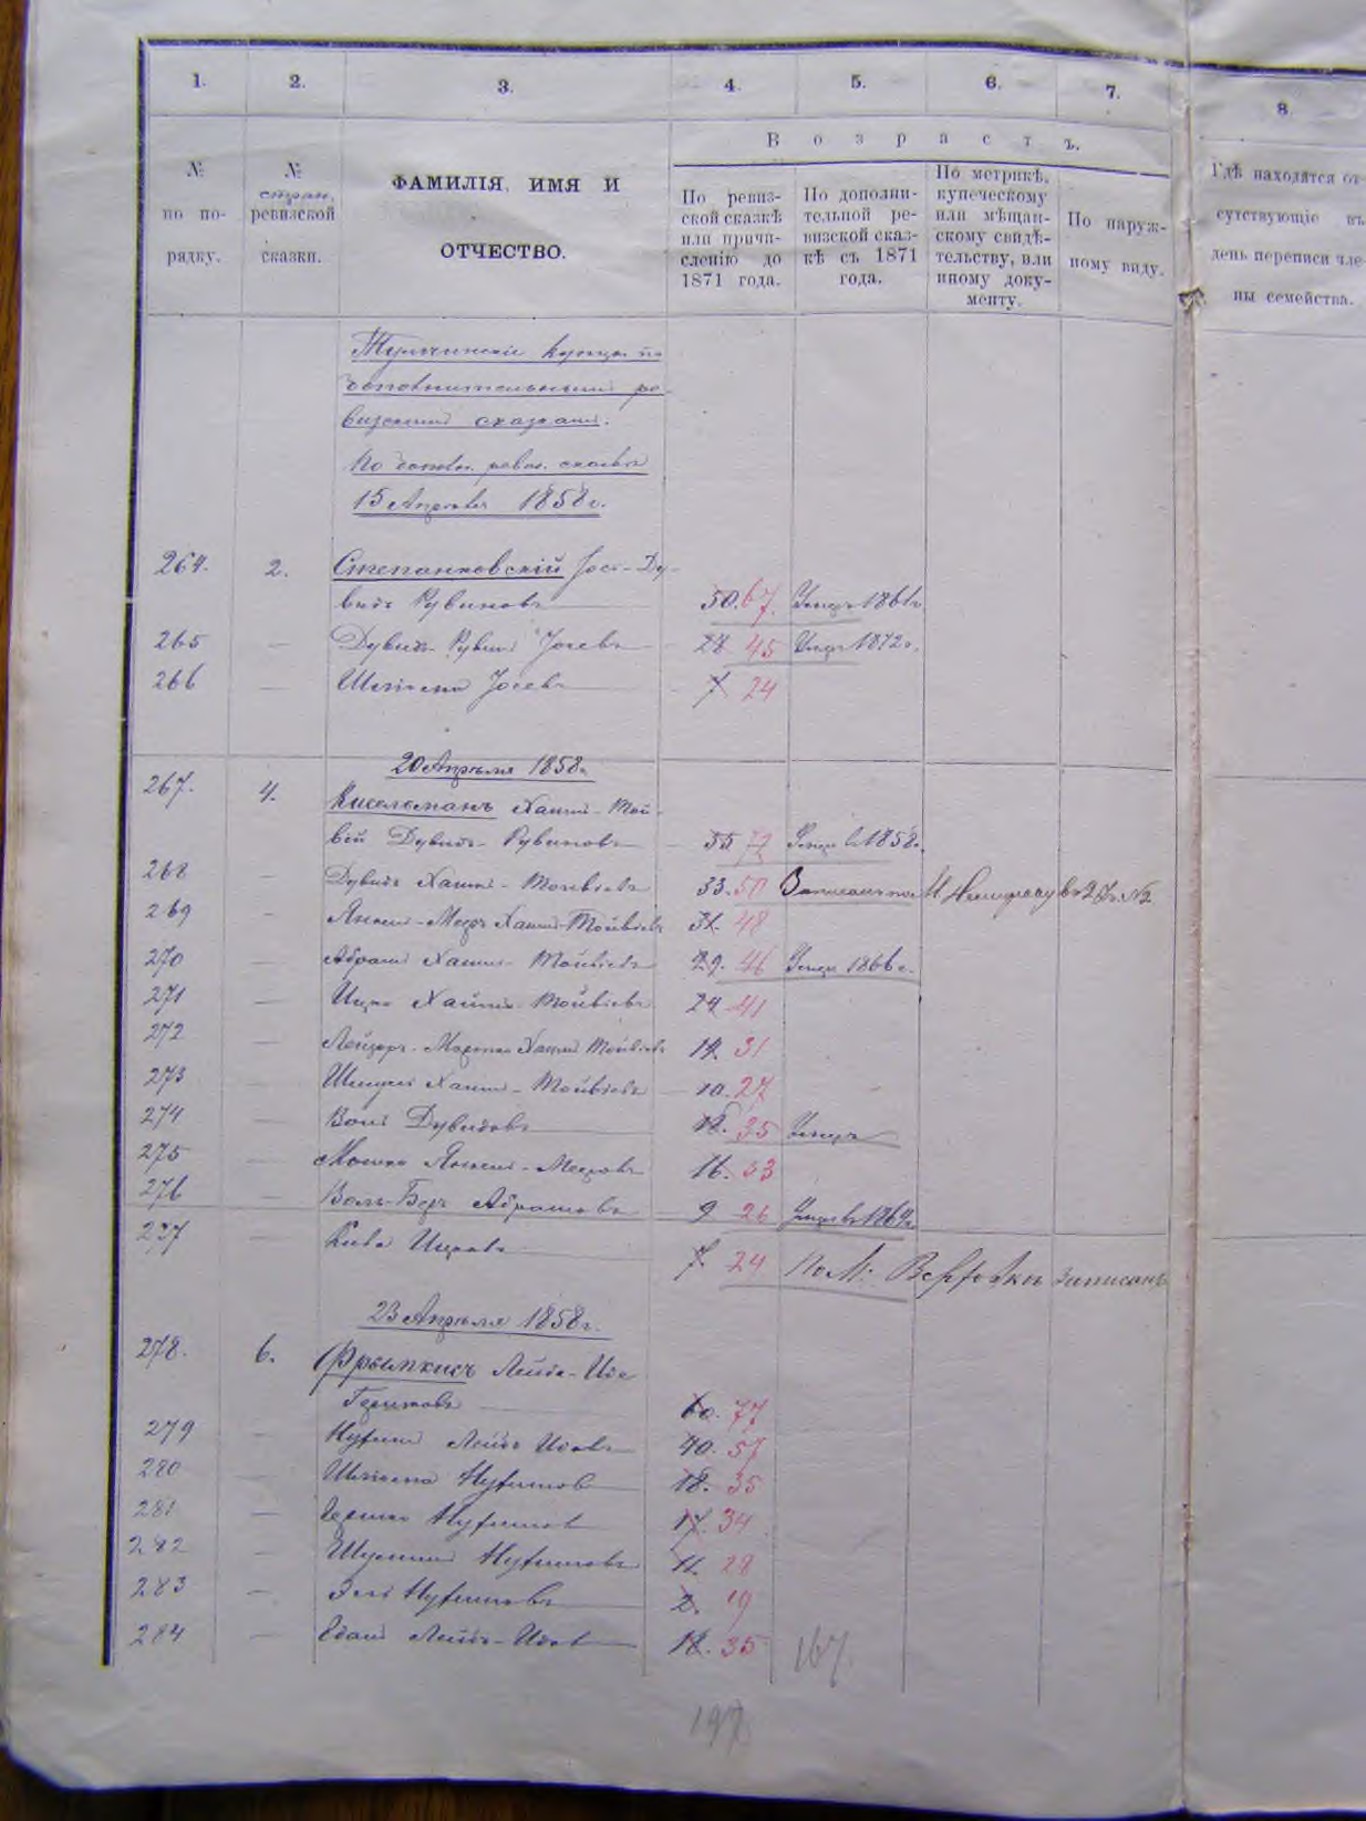 1. 2. 3. 4. 5. 6. 7. 8.
Возрастъ.
№ стран. по по- ревизской рядку. сказки.
ФАМИЛІЯ, ИМЯ И
ОТЧЕСТВО.
По ревиз-
ской сказкѣ
или причи-
сленію до
1871 года.
По дополни-
тельной ре-
визской сказ-
кѣ съ 1871
года.
По метрикѣ,
купеческому
или мѣщан-
скому свидѣ-
тельству, или
иному доку-
менту.
По наруж-
ному виду.
Гдѣ находятся от-
сутствующіе въ
день переписи чле-
ны семейства.
Тульчинскіе купцы по
дополнительнымъ ре-
визскимъ сказкамъ.
По допол. ревиз. сказкѣ
15 Апрѣля 1858 г.
264. 2. Степанковскій Іось-Ду-
видъ Рувиновъ 50. 67. Умеръ 1861 г.
265 — Дувидъ-Рувинъ Іосевъ 28 45 Умеръ 1872 г.
266 — Шліома Іосевъ 7 24
20 Апрѣля 1858 г.
267. 4. Кисельманъ Хаимъ-Той-
вій Дувидъ-Рувиновъ 55 72 Умеръ 1858 г.
268 — Дувидъ Хаимъ-Тойвіевъ 33. 50 Записанъ по м. Немирову в 2 ч. №2
269 — Янкель-Мееръ Хаимъ-Тойвіевъ 31. 48
270 — Абрамъ Хаимъ-Тойвіевъ 29. 46 Умеръ 1866 г.
271 — Ицко Хаимъ-Тойвіевъ 24 41
272 — Лейзоръ-Мортко Хаимъ Тойвіевъ 14. 31
273 — Шмуль Хаимъ-Тойвіевъ 10. 27
274 — Дувидовъ 18. 35 Умеръ
275 — Мошко Янкель-Мееровъ 16. 33
276 — Воль-Беръ Абрамовъ 9 26 Умеръ въ 1869 г.
237 — Кива Ицковъ 7 24 По М: Верховкѣ записанъ
23 Апрѣля 1858 г.
278. 6. Фрымкисъ Лейбъ-Идель
Гершковъ 60. 77
279 — Нухимъ Лейбъ Идель 40. 57
280 — Шліома Нухимовъ 18. 35
281 — Гершко Нухимовъ 17. 34
282 — Шулимъ Нухимовъ 11. 28
283 — Эль Нухимовъ 2. 19
284 — Лейбъ-Идель 18. 35
167.
197